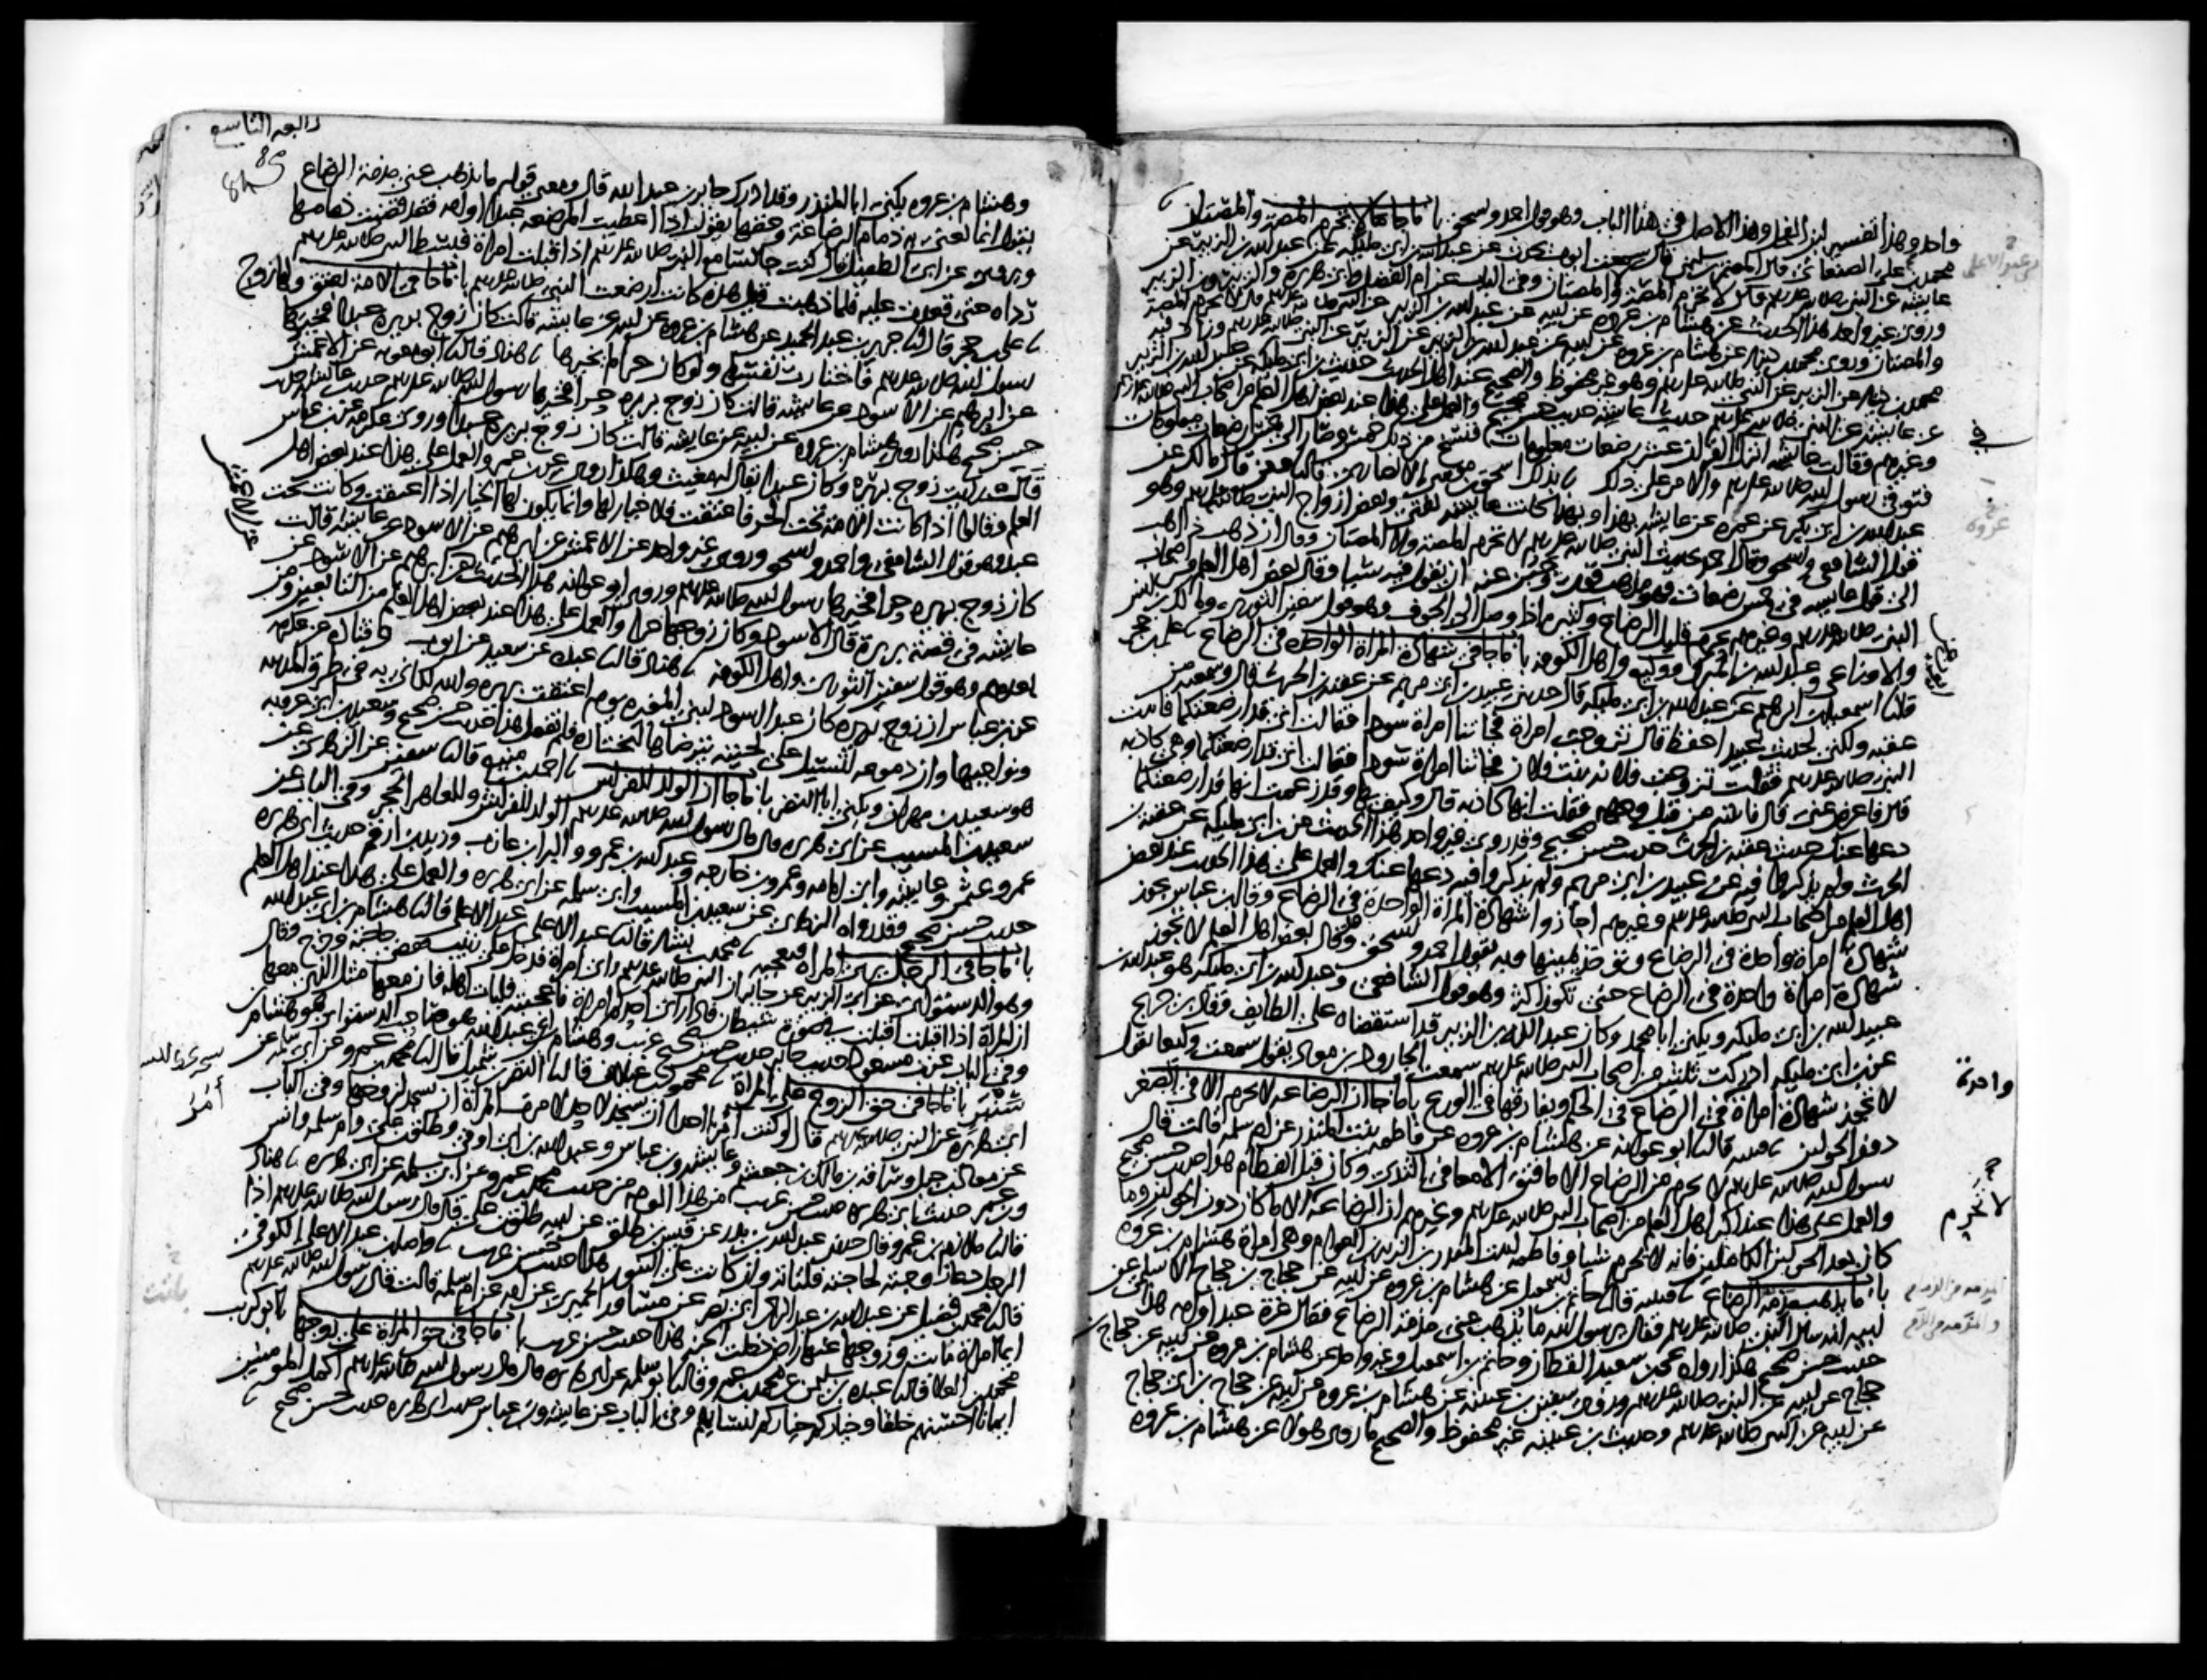 واحد وهذا تفسير لبن الفحل وهذا الاصل في هذا الباب وهو قول احمد واسحق باب ما جا لا تحرم المصة والمصتان
محمد بن عبد الاعلى الصنعاني قال نا المعتمر بن سليمن قال سمعت ايوب يحدث عن عبد الله بن ابي مليكه عن عبد الله بن الزبير عن
عايشة عن النبي صلى الله عليه وسلم قال لا تحرم المصة ولا المصتان وفي الباب عن ام الفضل وابي هريرة والزبير وابن الزبير
وروى غير واحد هذا الحديث عن هشام بن عروه عن ابيه عن عبد الله بن الزبير عن النبي صلى الله عليه وسلم قال لا تحرم المصة
والمصتان وروى محمد بن دينار عن هشام بن عروه عن ابيه عن عبد الله بن الزبير عن الزبير عن النبي صلى الله عليه وسلم وزاد فيه
محمد بن دينار عن الزبير عن النبي صلى الله عليه وسلم وهو غير محفوظ والصحيح عند اهل الحديث حديث ابن ابي مليكه عن عبد الله بن الزبير
عن عايشة عن النبي صلى الله عليه وسلم حديث عايشة حديث حسن صحيح والعمل على هذا عند بعض اهل العلم من اصحاب النبي صلى الله عليه وسلم
وغيرهم وقالت عايشة انزل في القران عشر رضعات معلومات فنسخ من ذلك خمس وصار الى خمس رضعات معلومات
فتوفي رسول الله صلى الله عليه وسلم والامر على ذلك نا بذلك اسحق بن موسى الانصاري قال نا معن قال نا مالك عن
عبد الله بن ابي بكر عن عمره عن عايشة بهذا وبهذا كانت عايشة تفتي وبعض ازواج النبي صلى الله عليه وسلم وهو
قول الشافعي واسحق وقال احمد بحديث النبي صلى الله عليه وسلم لا تحرم المصة ولا المصتان وقال ان ذهب ذاهب
الى قول عايشة في خمس رضعات فهو مذهب قوي وجبن عنه ان يقول فيه شيا وقال بعض اهل العلم من اصحاب
النبي صلى الله عليه وسلم وغيرهم يحرم قليل الرضاع وكثيره اذا وصل الى الجوف وهو قول سفين الثوري ومالك بن انس
والاوزاعي وعبد الله بن المبارك ووكيع واهل الكوفه باب ما جا في شهادة المراة الواحدة في الرضاع نا علي بن حجر
قال نا اسمعيل بن ابرهيم عن ايوب عن عبد الله بن ابي مليكه قال حدثني عبيد بن ابي مريم عن عقبه بن الحرث قال وسمعته من
عقبه ولكني لحديث عبيد احفظ قال تزوجت امراة فجاتنا امراة سودا فقالت اني قد ارضعتكما فاتيت
النبي صلى الله عليه وسلم فقلت تزوجت فلانه بنت فلان فجاتنا امراة سودا فقالت اني قد ارضعتكما وهي كاذبه
قال فاعرض عني قال فاتيته من قبل وجهه فقلت انها كاذبه قال وكيف بها وقد زعمت انها قد ارضعتكما
دعها عنك حديث عقبه بن الحرث حديث حسن صحيح وقد روى غير واحد هذا الحديث عن ابن ابي مليكه عن عقبه بن
الحرث ولم يذكروا فيه عن عبيد بن ابي مريم ولم يذكروا فيه دعها عنك والعمل على هذا الحديث عند بعض
اهل العلم من اصحاب النبي صلى الله عليه وسلم وغيرهم اجازوا شهادة المراة الواحدة في الرضاع وقال ابن عباس تجوز
شهادة امراة واحدة في الرضاع وتوخذ يمينها وبه يقول احمد واسحق وقال بعض اهل العلم لا تجوز
شهادة امراة واحدة في الرضاع حتى تكون اكثر وهو قول الشافعي وعبد الله بن ابي مليكه هو عبد الله بن
عبيد الله بن ابي مليكه ويكنى ابا محمد وكان عبد الله بن الزبير قد استقضاه على الطايف وقال ابن جريج
عن ابن ابي مليكه ادركت ثلثين من اصحاب النبي صلى الله عليه وسلم سمعت الجارود بن معاذ يقول سمعت وكيعا يقول
لا تجوز شهادة امراة في الرضاع في الحكم ويفارقها في الورع باب ما جا ان الرضاعة لا تحرم الا في الصغر
دون الحولين نا قتيبه قال نا ابو عوانه عن هشام بن عروه عن فاطمه بنت المنذر عن ام سلمه قالت قال
رسول الله صلى الله عليه وسلم لا يحرم من الرضاع الا ما فتق الامعا في الثدي وكان قبل الفطام هذا حديث حسن صحيح
والعمل على هذا عند اكثر اهل العلم من اصحاب النبي صلى الله عليه وسلم وغيرهم ان الرضاعة لا تحرم الا ما كان دون الحولين وما
كان بعد الحولين الكاملين فانه لا يحرم شيا وفاطمه بنت المنذر بن الزبير بن العوام وهي امراة هشام بن عروه
باب ما يذهب مذمة الرضاع نا قتيبه قال نا حاتم بن اسمعيل عن هشام بن عروه عن ابيه عن حجاج بن حجاج الاسلمي عن
ابيه انه سال النبي صلى الله عليه وسلم فقال يا رسول الله ما يذهب عني مذمة الرضاع فقال غرة عبد او امه هذا
حديث حسن صحيح هكذا رواه يحيى بن سعيد القطان وحاتم بن اسمعيل وغير واحد عن هشام بن عروه عن ابيه عن حجاج بن
حجاج عن ابيه عن النبي صلى الله عليه وسلم وروى سفين بن عيينه عن هشام بن عروه عن ابيه عن حجاج بن ابي حجاج
عن ابيه عن النبي صلى الله عليه وسلم وحديث ابن عيينه غير محفوظ والصحيح ما روى هولا عن هشام بن عروه
بن عبد الاعلى
في
عروة
واحدة
لا تحرم
رابعه التاسع
84
وهشام بن عروه يكنى ابا المنذر وقد ادرك جابر بن عبد الله قال ومعنى قوله ما يذهب عني مذمة الرضاع
يقول انما يعني به ذمام الرضاعة وحقها يقول اذا اعطيت المرضعه عبدا او امه فقد قضيت ذمامها
ويروى عن ابي الطفيل قال كنت جالسا مع النبي صلى الله عليه وسلم اذ اقبلت امراة فبسط النبي صلى الله عليه وسلم
رداه حتى قعدت عليه فلما ذهبت قيل هذه كانت ارضعت النبي صلى الله عليه وسلم باب ما جا في الامة تعتق ولها زوج
نا علي بن حجر قال نا جرير بن عبد الحميد عن هشام بن عروه عن ابيه عن عايشة قالت كان زوج بريره عبدا فخيرها
رسول الله صلى الله عليه وسلم فاختارت نفسها ولو كان حرا لم يخيرها نا هناد قال نا ابو معويه عن الاعمش
عن ابرهيم عن الاسود عن عايشة قالت كان زوج بريره حرا فخيرها رسول الله صلى الله عليه وسلم حديث عايشة حديث
حسن صحيح هكذا روى هشام بن عروه عن ابيه عن عايشة قالت كان زوج بريره عبدا وروى عكرمه عن ابن عباس
قال رايت زوج بريره وكان عبدا يقال له مغيث وهكذا روي عن ابن عمر والعمل على هذا عند بعض اهل
العلم وقالوا اذا كانت الامة تحت الحر فاعتقت فلا خيار لها وانما يكون لها الخيار اذا اعتقت وكانت تحت
عبد وهو قول الشافعي واحمد واسحق وروى غير واحد عن الاعمش عن ابرهيم عن الاسود عن عايشة قالت
كان زوج بريره حرا فخيرها رسول الله صلى الله عليه وسلم وروى ابو عوانه هذا الحديث عن ابرهيم عن الاسود عن
عايشة في قصة بريرة قال الاسود وكان زوجها حرا والعمل على هذا عند بعض اهل العلم من التابعين ومن
بعدهم وهو قول سفين الثوري واهل الكوفه نا هناد قال نا عبده عن سعيد عن ايوب وقتاده عن عكرمه
عن ابن عباس ان زوج بريره كان عبدا اسود لبني المغيره يوم اعتقت بريره والله لكاني به في طرق المدينه
ونواحيها وان دموعه لتسيل على لحيته يترضاها لتختاره فلم تفعل هذا حديث حسن صحيح وسعيد بن ابي عروبه
هو سعيد بن مهران ويكنى ابا النضر باب ما جا ان الولد للفراش نا احمد بن منيع قال نا سفين عن الزهري عن
سعيد بن المسيب عن ابي هريره قال قال رسول الله صلى الله عليه وسلم الولد للفراش وللعاهر الحجر وفي الباب عن
عمر وعثمن وعايشة وابي امامه وعمرو بن خارجه وعبد الله بن عمرو والبرا بن عازب وزيد بن ارقم حديث ابي هريره
حديث حسن صحيح وقد رواه الزهري عن سعيد بن المسيب وابي سلمه عن ابي هريره والعمل على هذا عند اهل العلم
باب ما جا في الرجل يرى المراه فتعجبه نا محمد بن بشار قال نا عبد الاعلى بن عبد الاعلى قال نا هشام بن ابي عبد الله
وهو الدستوائي عن ابي الزبير عن جابر ان النبي صلى الله عليه وسلم راى امراة فدخل على زينب فقضى حاجته وخرج وقال
ان المراة اذا اقبلت اقبلت في صورة شيطان فاذا راى احدكم امراة فاعجبته فليات اهله فان معها مثل الذي معها
وفي الباب عن ابن مسعود حديث جابر حديث حسن صحيح غريب وهشام بن ابي عبد الله هو صاحب الدستوائي هو هشام بن
سنبر باب ما جا في حق الزوج على المراة نا محمود بن غيلان قال نا النضر بن شميل قال نا محمد بن عمرو عن ابي سلمه عن
ابي هريره عن النبي صلى الله عليه وسلم قال لو كنت آمرا احدا ان يسجد لاحد لامرت المراة ان تسجد لزوجها وفي الباب
عن معاذ بن جبل وسراقه بن مالك بن جعشم وعايشة وابن عباس وعبد الله بن ابي اوفى وطلق بن علي وام سلمه وانس
وابن عمر حديث ابي هريره حديث حسن غريب من هذا الوجه من حديث محمد بن عمرو عن ابي سلمه عن ابي هريره نا هناد
قال نا ملازم بن عمرو قال حدثني عبد الله بن بدر عن قيس بن طلق عن ابيه طلق بن علي قال قال رسول الله صلى الله عليه وسلم اذا
الرجل دعا زوجته لحاجته فلتاته وان كانت على التنور هذا حديث حسن غريب نا واصل بن عبد الاعلى الكوفي
قال نا محمد بن فضيل عن عبد الله بن عبد الرحمن ابي نصر عن مساور الحميري عن امه عن ام سلمه قالت قال رسول الله صلى الله عليه وسلم
ايما امراة ماتت وزوجها عنها راض دخلت الجنه هذا حديث حسن غريب باب ما جا في حق المراة على زوجها نا ابو كريب
محمد بن العلا قال نا عبده بن سليمن عن محمد بن عمرو قال نا ابو سلمه عن ابي هريره قال قال رسول الله صلى الله عليه وسلم اكمل المومنين
ايمانا احسنهم خلقا وخياركم خياركم لنسايهم وفي الباب عن عايشة وابن عباس حديث ابي هريره حديث حسن صحيح
عن الاعمش
آمر
باتت